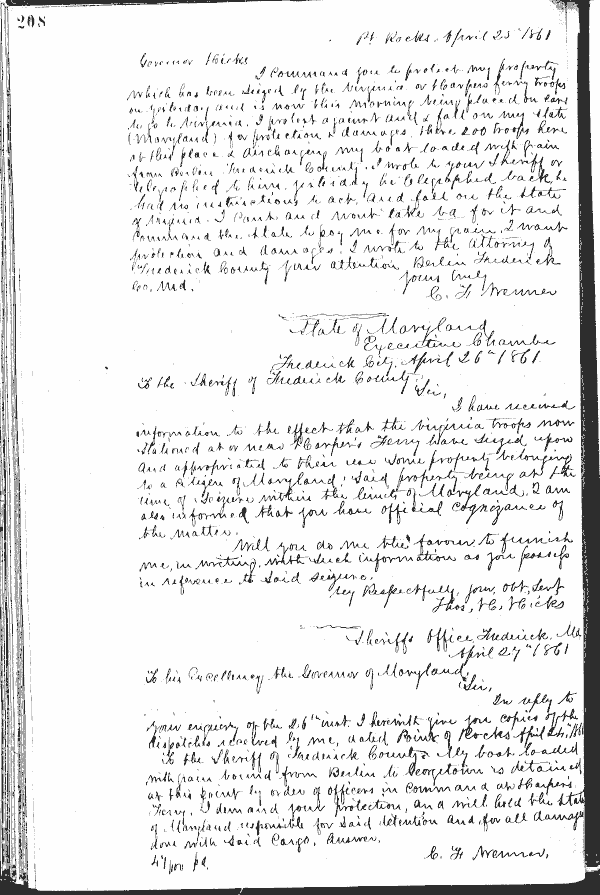 208
Pt Rocks, April 25th 1861
Governor Hicks
I command you to protect my property
which has been seized by the Virginia or Harpers ferry troops
on yesterday and is now this morning being placed on cars
to go to Virginia. I protest against and & fall on my State
(Maryland) for protection & damages. there 200 troops here
at this place & discharging my boat loaded with grain
from Berlin Frederick County. I wrote to your Sheriff or
telegraphed to him yesterday he telegraphed back he
had no instructions to act. and fall on the State
of Virginia. I cant and wont take Va for it and
command the State to pay me for my grain. I want
protection and damages. I wrote to the Attorney of
Frederick County your attention Berlin Frederick
Co. Md.
yours truly
C. F. Wenner
State of Maryland
Executive Chamber
Frederick City, April 26th 1861
To the Sheriff of Frederick County
Sir,
I have received
information to the effect that the Virginia troops now
stationed at or near Harper's Ferry have seized upon
and appropriated to their use some property belonging
to a citizen of Maryland; said property being at the
time of seizure within the limits of Maryland. I am
also informed that you have official cognizance of
the matter.
Will you do me the favour to furnish
me, in writing, with such information as you possess
in reference to said seizure.
Very Respectfully, your Obt, Servt
Thos, H. Hicks
Sheriffs Office, Frederick, Md
April 27th 1861
To his Excellency the Governor of Maryland,
Sir,
In reply to
your enquiry of the 26th inst. I herewith give you copies of the
dispatches received by me, dated Point of Rocks April 24, 1861
To the Sheriff of Frederick County - My boat loaded
with grain bound from Berlin to Georgetown is detained
at this point by order of officers in command at Harper's
Ferry, I demand your protection, and will hold the State
of Maryland responsible for said detention and for all damage
done with said Cargo, answer.
47 pd.
C. F. Wenner,